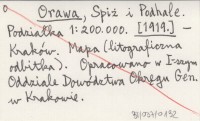 Orawa, Spiż i Podhale.
Podziałka 1:200.000. [1919.] –
Kraków. Mapa (litograficzna
odbitka). Opracowano w I-szym
Oddziale Dowództwa Okręgu Gen.
w Krakowie.